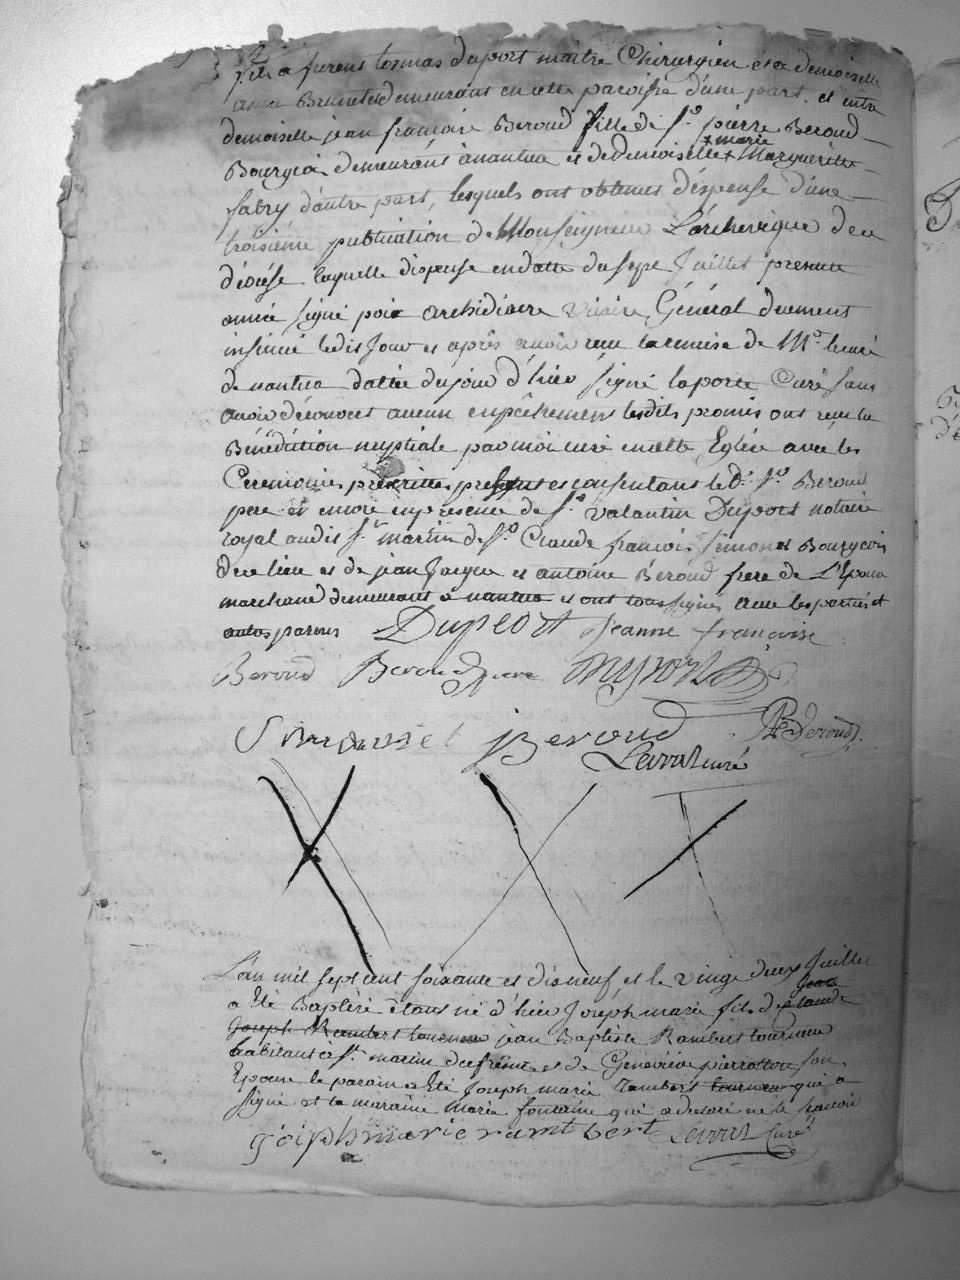 fils a furent tosmas duport maitre Chirurgien et a demoiselle
anna Brunet demeurant en cette paroisse d'une part. et entre
demoiselle jean francoise Beroud fille de Sr pierre Beroud
Bourgeois demeurans a nantua et de Demoiselle + Marguerite
+ marie
fabry d'autre part, lesquels ont obtenus dèspense d'une
troisième publication de Monseigneur L'archeveque de ce
diocése laquelle dispense en datte du sept Juillet presente
année signé poix archidiacre Vicaire Général deument
insinué ledis Jour et après avoir veu la remise de Mr le curé
de nantua datée du jour d'hier signé laporte Curé sans
avoir découvert aucun empêchement lesdits promis ont reçu la
Bénédiction nuptiale par moi curé en cette Eglise avec les
Ceremonies prescrites presents et consentans le d. Sr Beroud
pere et encore en presence de Sr Valantin Duport notaire
royal audit St martin de Sr Claude francois Simonet Bourgeois
de ce lieu et de jean Jacque et antoine Béroud frere de L'Epouse
marchand demeurant a nantua et ont tous signés avec les parties et
autres parens Duport Jeanne francoise
Beroud Beroud pere Duport
Simonet Beroud Beroud
Levrat curé
L'an mil sept cent soixante et dix neuf et le vingt deux Juillet
a Eté Baptisé étant né d'hier Joséph marie fils de Jean claude
Joseph Rambert tourneur jean Baptiste Rambert tourneur
habitant a St martin du frêne et de Genevieve pierrotton son
Epouse le parain a Eté Joseph marie rambert tourneur qui a
signé et la maraine marie fontaine qui a declaré ne le scavoir
joiseph marie rambert Levrat Curé